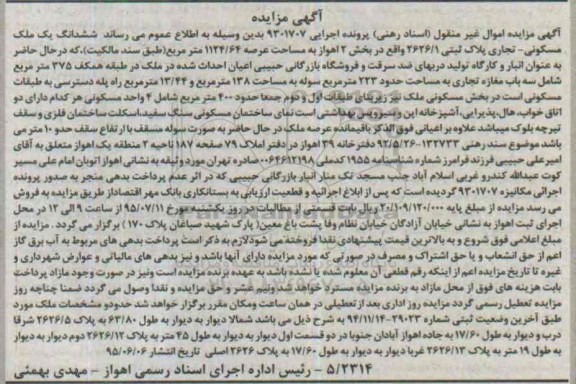 آگهی مزایده
آگهی مزایده اموال غیر منقول (اسناد رهنی) پرونده اجرایی ۹۳۰۱۷۰۷ بدین وسیله به اطلاع عموم می رساند ششدانگ یک ملک
مسکونی- تجاری پلاک ثبتی ۲۶۲۶/۱ واقع در بخش ۲ اهواز به مساحت عرصه ۱۱۲۴/۶۴ متر مربع(طبق سند مالکیت)،که درحال حاضر
به عنوان انبار و کارگاه تولید دربهای ضد سرقت و فروشگاه بازرگانی حبیبی اعیان احداث شده در ملک در طبقه همکف ۳۷۵ متر مربع
شامل سه باب مغازه تجاری به مساحت حدود ۲۲۳ مترمربع سوله به مساحت ۱۳۸ مترمربع و ۱۳/۴۴ مترمربع راه پله دسترسی به طبقات
مسکونی است در بخش مسکونی ملک نیز زیربنای طبقات اول و دوم جمعا حدود ۴۰۰ متر مربع شامل ۴ واحد مسکونی هر کدام دارای دو
اتاق خواب، هال،پذیرایی، آشپزخانه اپن و سرویس بهداشتی است نمای ساختمان مسکونی سنگ سفید،اسکلت ساختمان فلزی و سقف
تیرچه بلوک میباشد علاوه بر اعیانی فوق الذکر باقیمانده عرصه ملک در حال حاضر به صورت سوله مسقف با ارتفاع سقف حدود ۱۰ متر می
باشد موضوع سند رهنی ۱۳۲۷۳۳-۹۲/۵/۲۶ دفترخانه ۳۹ اهواز در دفتر املاک ۷۹ صفحه ۱۸۷ ناحیه ۲ منطقه یک اهواز متعلق به آقای
امیر علی حبیبی فرزند فرامرز شماره شناسنامه ۱۹۵۵ کدملی ۰۰۶۴۶۱۲۱۹۸ صادره تهران مورد وثیقه به نشانی اهواز اتوبان امام علی مسیر
کوت عبدالله کندرو غربی اسلام آباد جنب مسجد تک منار انبار بازرگانی حبیبی که در اثر عدم پرداخت بدهی منجر به صدور پرونده
اجرائی مکانیزه ۹۳۰۱۷۰۷ گردیده است که پس از ابلاغ اجرائیه و قطعیت ارزیابی به بستانکاری بانک مهر اقتصاداز طریق مزایده به فروش
می رسد مزایده از مبلغ پایه ۲۰/۱۰۹/۱۲۰/۰۰۰ ریال بابت قسمتی از مطالبات در روز یکشنبه مورخ ۹۵/۰۷/۱۱ از ساعت ۹ الی ۱۲ در محل
اجرای ثبت اهواز به نشانی خیابان آزادگان خیابان نظام وفا پشت باغ معین(پارک شهید صباغان پلاک ۱۷۰ ) برگزار می گردد . مزایده از
مبلغ اعلامی فوق شروع و به بالاترین قیمت پیشنهادی نقدا فروخته می شودلازم به ذکر است پرداخت بدهی های مربوط به آب برق گاز
اعم از حق انشعاب و یا حق اشتراک و مصرف در صورتی که مورد مزایده دارای آنها باشد و نیز بدهی های مالیاتی و عوارض شهرداری و
غیره تا تاریخ مزایده اعم از اینکه رقم قطعی آن معلوم شده یا نشده باشد به عهده برنده مزایده است ونیز در صورت وجود مازاد پرداخت
بابت هزینه های فوق از محل مازاد به برنده مزایده مسترد خواهد شد ونیم عشر و حق مزایده و نقدا وصول می گردد ضمنا چنانچه روز
مزایده تعطیل رسمی گردد مزایده روز اداری بعد از تعطیلی در همان ساعت ومکان مقرر برگزار خواهد شد حدودو مشخصات ملک مورد
طبق آخرین وضعیت ثبتی شماره ۲۹۰۲۳-۹۴/۱۱/۱۴ به شرح ذیل می باشد شمالا دیوار به دیوار به طول ۶۳/۸۰ به پلاک ۲۶۲۶/۵ شرقا
درب و دیوار به طول ۱۷/۶۰ به جاده اهواز آبادان جنوبا در دو قسمت اول دیوار به دیوار به طول ۴۵ متر به پلاک ۲۶۲۶/۱۲ دوم دیوار به دیوار
به طول ۱۹ متر به پلاک ۲۶۲۶/۱۳ غربا دیوار به دیوار به طول ۱۷/۶۰ به پلاک ۲۶۲۶ اصلی تاریخ انتشار ۹۵/۰۶/۰۶
۵/۲۳۱۴ - رئیس اداره اجرای اسناد رسمی اهواز - مهدی بهمئی